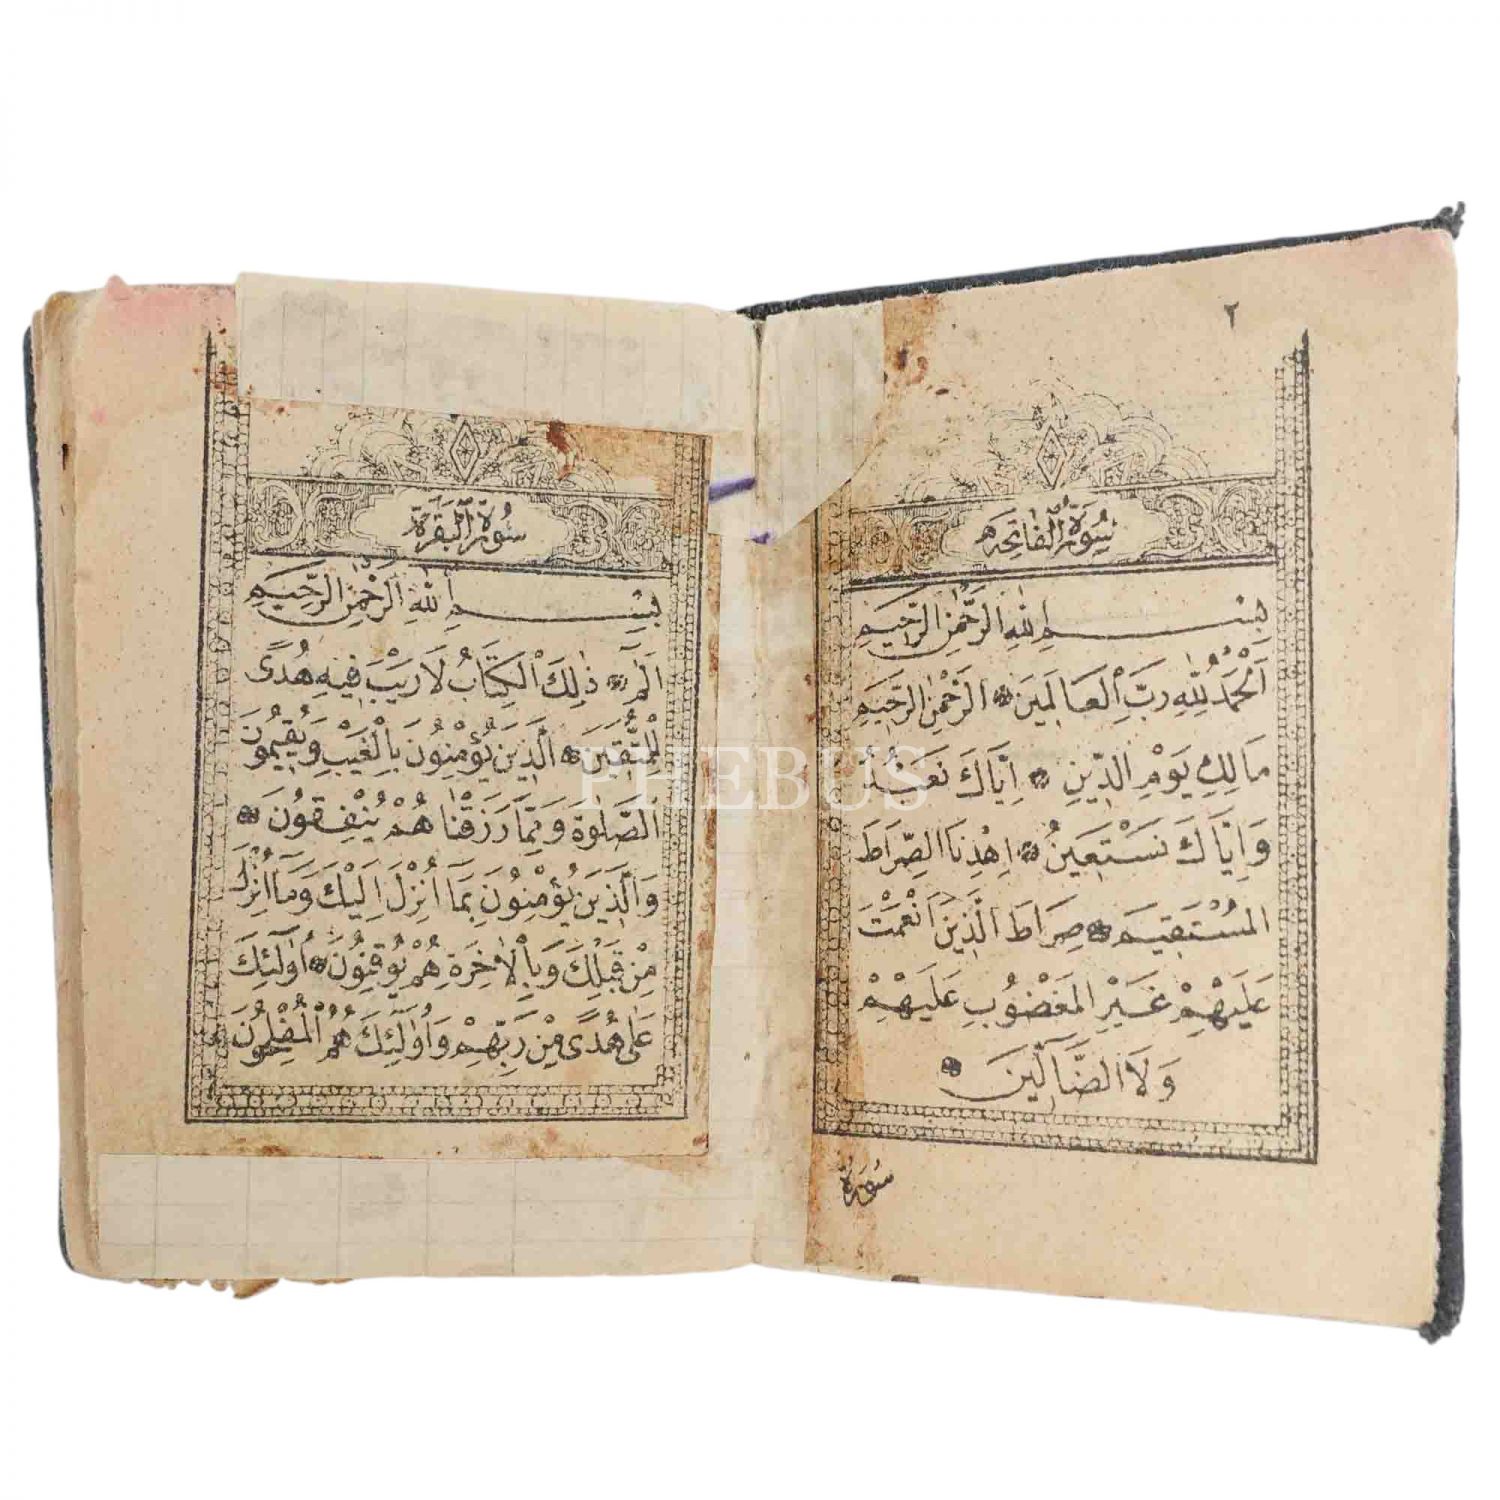 ٢
سُورَةُ الْفَاتِحَه
بِسْمِ اللهِ الرَّحْمٰنِ الرَّحِيمِ
اَلْحَمْدُ لِلّٰهِ رَبِّ الْعَالَمِينَ ۞ الرَّحْمٰنِ الرَّحِيمِ
مَالِكِ يَوْمِ الدِّينِ ۞ اِيَّاكَ نَعْبُدُ
وَاِيَّاكَ نَسْتَعِينُ ۞ اِهْدِنَا الصِّرَاطَ
الْمُسْتَقِيمَ ۞ صِرَاطَ الَّذِينَ اَنْعَمْتَ
عَلَيْهِمْ غَيْرِ الْمَغْضُوبِ عَلَيْهِمْ
وَلَا الضَّالِّينَ ۞
سُورَةُ
سُورَةُ الْبَقَرَة
بِسْمِ اللهِ الرَّحْمٰنِ الرَّحِيمِ
الٓمٓ ۞ ذٰلِكَ الْكِتَابُ لَا رَيْبَ فِيهِ هُدًى
لِلْمُتَّقِينَ ۞ الَّذِينَ يُؤْمِنُونَ بِالْغَيْبِ وَيُقِيمُونَ
الصَّلٰوةَ وَمِمَّا رَزَقْنَاهُمْ يُنْفِقُونَ ۞
وَالَّذِينَ يُؤْمِنُونَ بِمَا اُنْزِلَ اِلَيْكَ وَمَا اُنْزِلَ
مِنْ قَبْلِكَ وَبِالْاٰخِرَةِ هُمْ يُوقِنُونَ ۞ اُولٰٓئِكَ
عَلٰى هُدًى مِنْ رَبِّهِمْ وَاُولٰٓئِكَ هُمُ الْمُفْلِحُونَ
PHEBUS